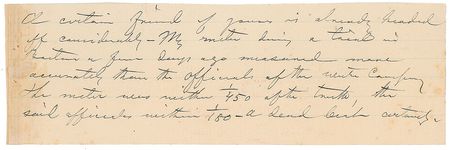 A certain friend of yours is already headed
off considerably – My meter during a trial in
Boston a few days ago measured more
accurately than the officials of the water Company
the meter was within 1/450 of the truth, the
said officials within 1/80 – A dead beat certainly.